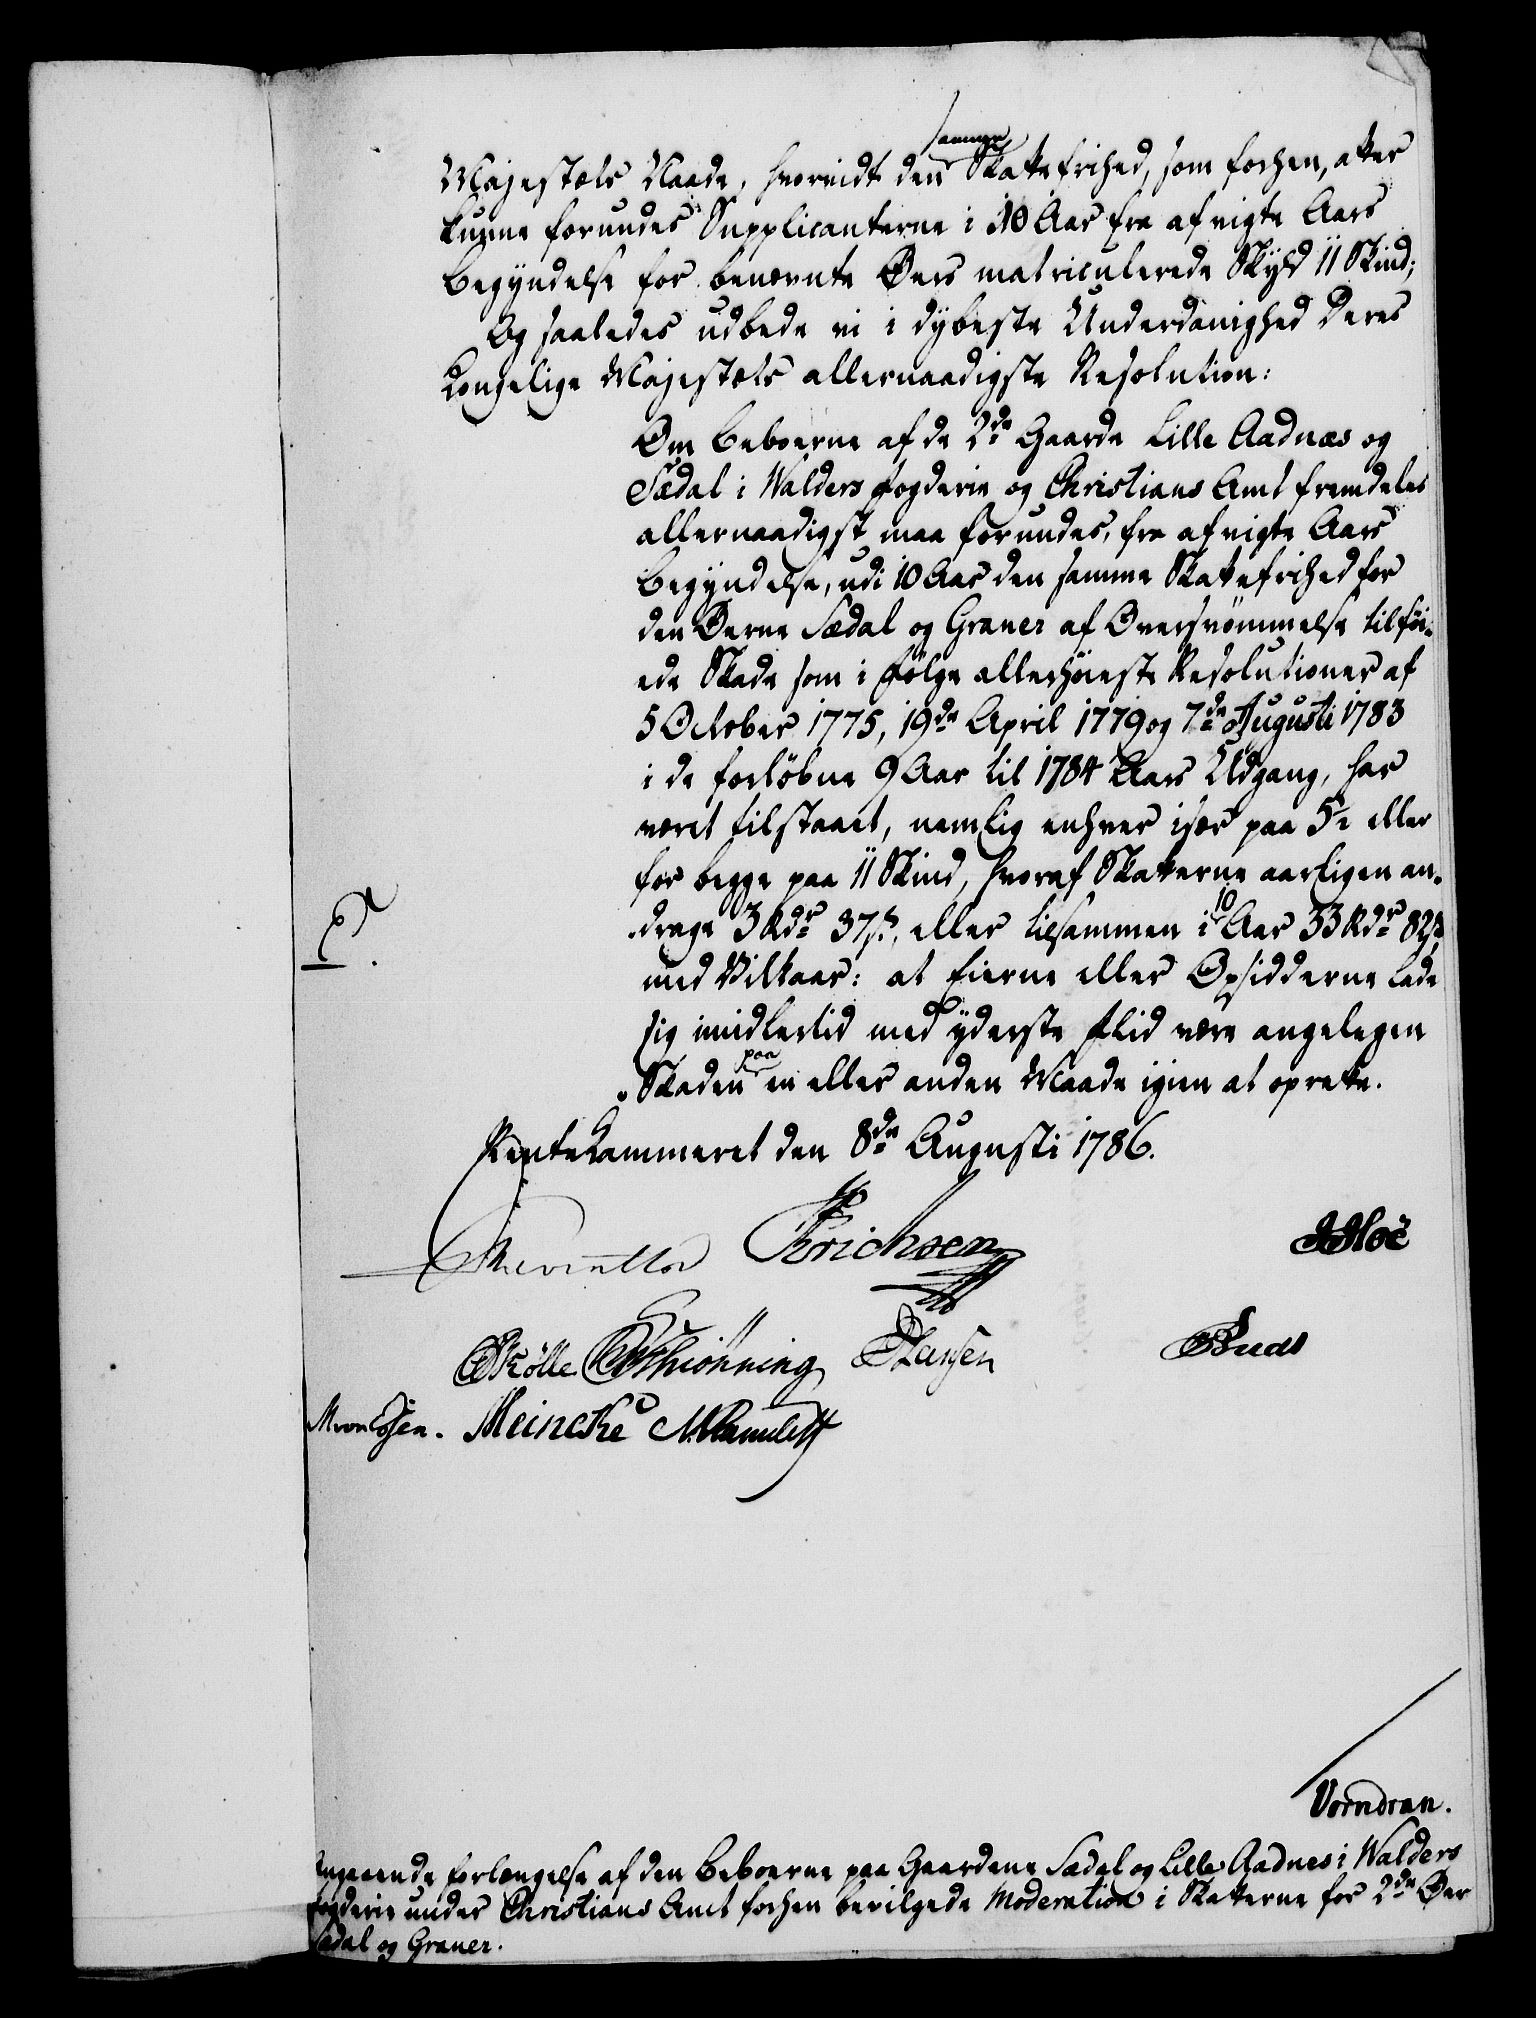 Majestets Naade, hvorvidt den samme Skattefrihed, som forhen, atter
kunne forundes Supplicanterne i 10 Aar fra afvigte Aars
Begyndelse for benævnte Øers matriculerede Skyld 11 Skind;
Og saaledes udbede vi i dybeste Underdanighed Deres
Kongelige Majestets allernaadigste Resolution:
Om Beboerne af de 2de Gaarde Lille Aadnæs og
Sædal i Walders Fogderie og Christians Amt fremdeles
allernaadigst maa forundes, fra afvigte Aars
Begyndelse, udi 10 Aar den samme Skattefrihed for
den Øerne Sædal og Graner af Oversvömmelse tilföi-
ede Skade som i Fölge allerhöieste Resolutioner af
5 October 1775, 19de April 1779 og 7de Augusti 1783
i de forløbne 9 Aar til 1784 Aars Udgang, har
været tilstaaet, nemlig enhver især paa 5½ eller
for begge paa 11 Skind, hvoraf Skatterne aarligen an-
drage 3 Rdr 37 s., eller tilsammen i 10 Aar 33 Rdr 82 s,
med Vilkaar: at Eierne eller Opsidderne lade
sig imidlertid med yderste Flid være angelegen
Skaden paa en eller anden Maade igien at oprette.
RenteKammeret den 8de Augusti 1786.
Reventlow Erichsen JHoë
Kölle Schiönning Hansen
Meincke
Vorndran.
Angaaende Forlængelse af den Beboerne paa Gaardene Sædal og Lille Aadnes i Walders
Fogderie under Christians Amt forhen bevilgede Moderation i Skatterne for 2de Øer
Sædal og Graner.